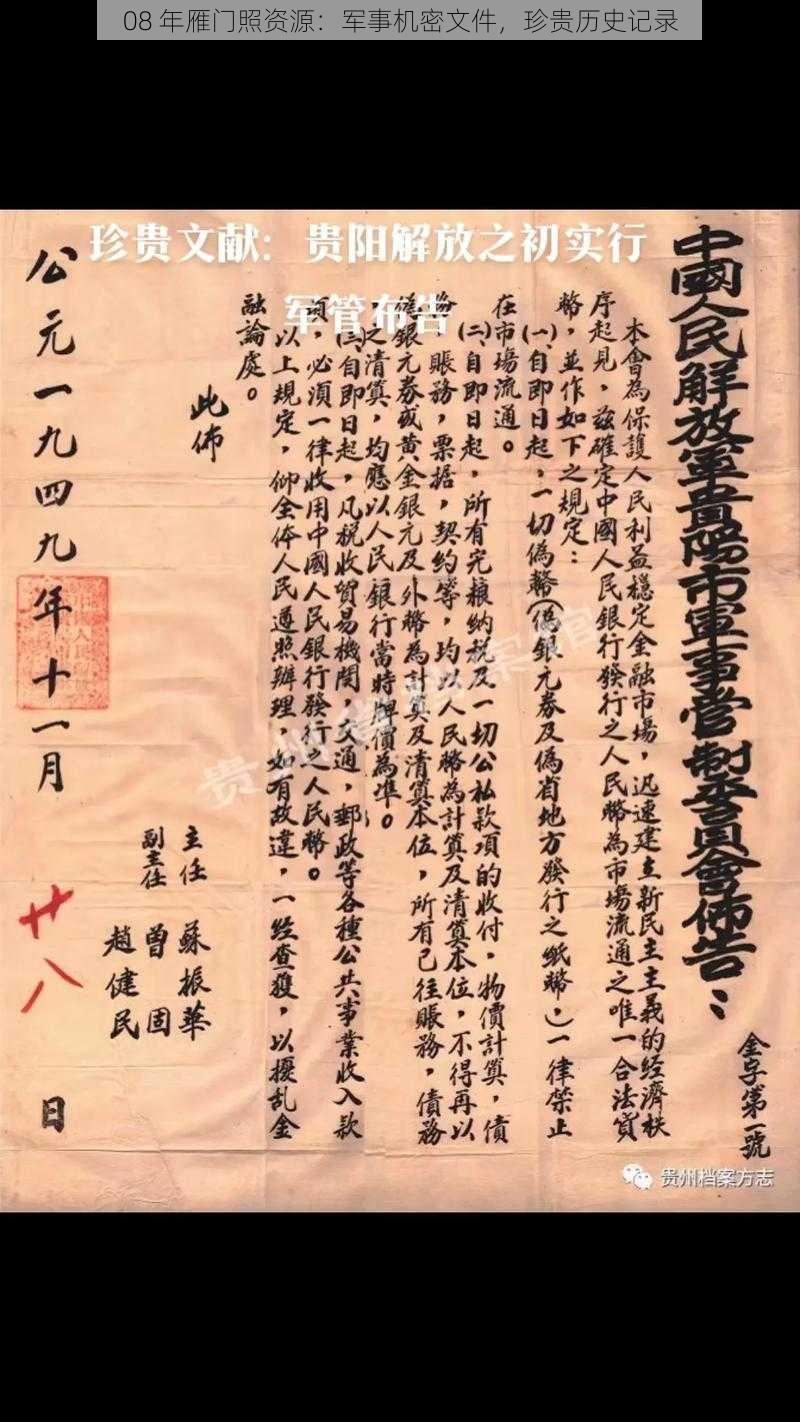 08 年雁门照资源：军事机密文件，珍贵历史记录
珍贵文献：贵阳解放之初实行
军管布告
中國人民解放軍貴陽市軍事管制委員會佈告：
金字第一號
本會為保護人民利益穩定金融市場，迅速建立新民主主義的经濟秩
序起見，兹確定中國人民銀行發行之人民幣為市場流通之唯一合法貨
幣，並作如下之規定：
㈠自即日起，一切偽幣（偽銀元券及偽省地方發行之纸幣，）一律禁止
在市場流通。
㈡自即日起，所有完粮納税及一切公私款項的收付，物價計算，債
務，賬務，票据，契約等，均以人民幣為計算及清算本位，不得再以
偽銀元券或黄金銀元及外幣為計算及清算本位，所有已往賬務，債務
之清算，均應以人民銀行當時牌價為準。
㈢自即日起，凡税收貿易機関，交通，郵政等各種公共事業收入款
項，必須一律收用中國人民銀行發行之人民幣。
以上規定，仰全体人民遵照辦理，如有故違，一经查獲，以擾乱金
融論處。
此佈
主任 蘇振華
副主任 曾固
趙健民
公元一九四九年十一月廿八日
贵州档案方志